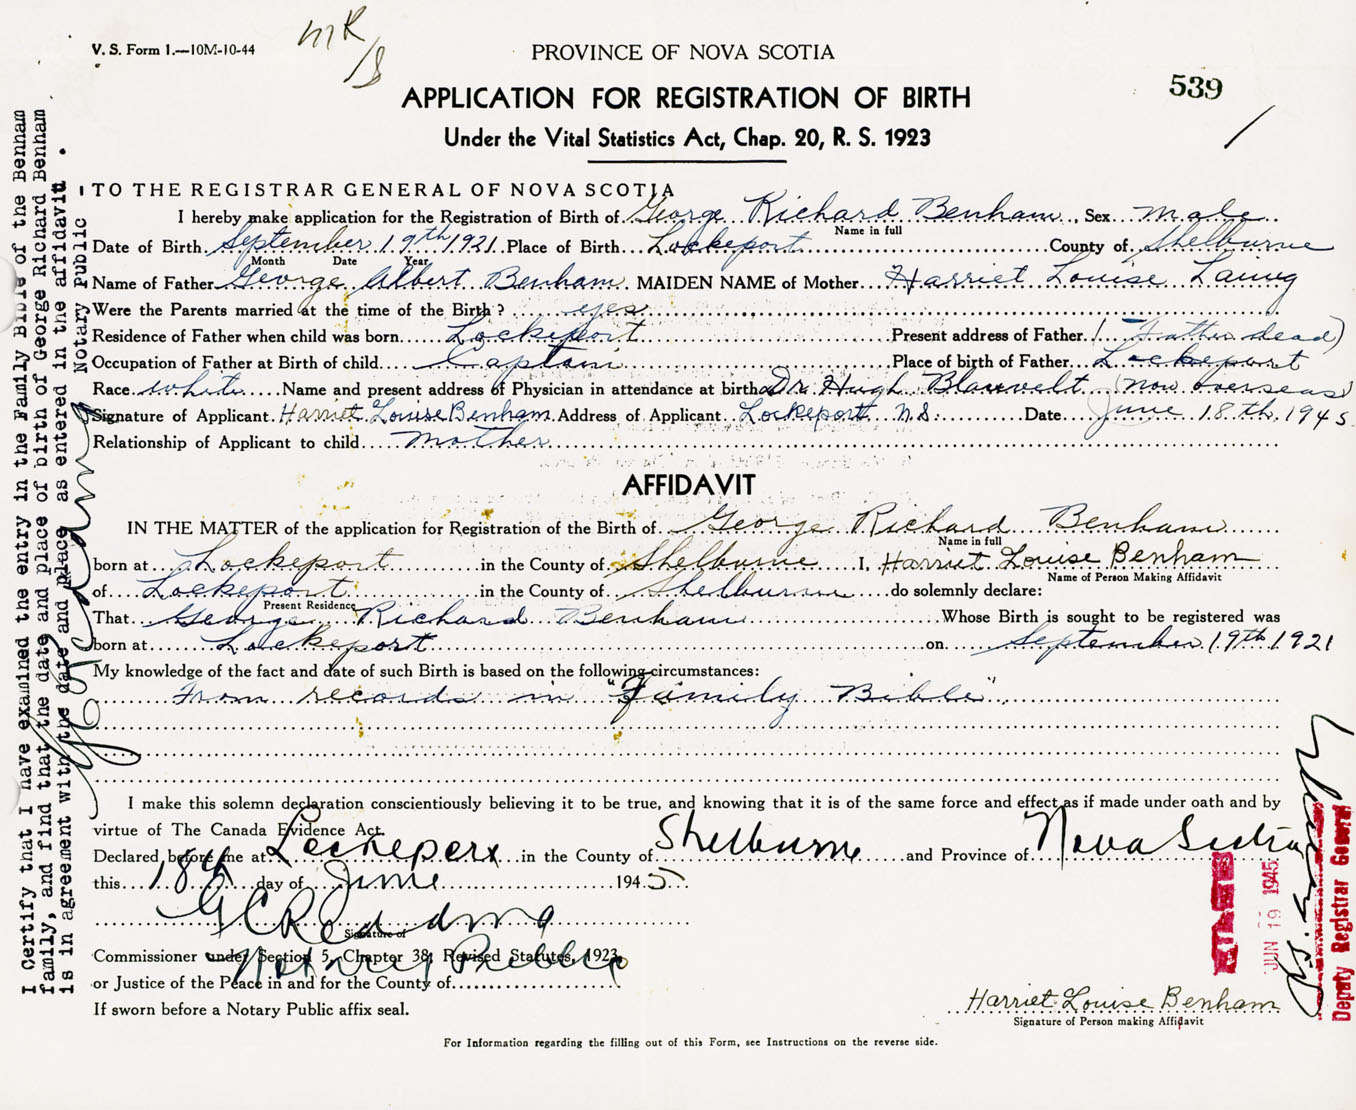 V. S. Form 1.—10M-10-44
PROVINCE OF NOVA SCOTIA
539
APPLICATION FOR REGISTRATION OF BIRTH
Under the Vital Statistics Act, Chap. 20, R. S. 1923
TO THE REGISTRAR GENERAL OF NOVA SCOTIA
I hereby make application for the Registration of Birth of George Richard Benham, Sex Male
Name in full
Date of Birth September 19th 1921 Place of Birth Lockeport County of Shelburne
Month Date Year
Name of Father George Albert Benham MAIDEN NAME of Mother Harriet Louise Laing
Were the Parents married at the time of the Birth? yes
Residence of Father when child was born Lockeport Present address of Father (Father dead)
Occupation of Father at Birth of child Captain Place of birth of Father Lockeport
Race white Name and present address of Physician in attendance at birth Dr. Hugh Blauvelt (now overseas)
Signature of Applicant Harriet Louise Benham Address of Applicant Lockeport N.S. Date June 18th, 1945
Relationship of Applicant to child mother
AFFIDAVIT
IN THE MATTER of the application for Registration of the Birth of George Richard Benham
Name in full
born at Lockeport in the County of Shelburne I, Harriet Louise Benham
Name of Person Making Affidavit
of Lockeport in the County of Shelburne do solemnly declare:
Present Residence
That George Richard Benham Whose Birth is sought to be registered was
born at Lockeport on September 19th 1921
My knowledge of the fact and date of such Birth is based on the following circumstances:
From records in "Family Bible".
I make this solemn declaration conscientiously believing it to be true, and knowing that it is of the same force and effect as if made under oath and by
virtue of The Canada Evidence Act.
Declared before me at Lockeport in the County of Shelburne and Province of Nova Scotia
this 18th day of June 1945
Signature of
Commissioner under Section 5, Chapter 38, Revised Statutes, 1923
Notary Public
or Justice of the Peace in and for the County of
If sworn before a Notary Public affix seal.
Harriet Louise Benham
Signature of Person making Affidavit
For Information regarding the filling out of this Form, see Instructions on the reverse side.
I Certify that I have examined the entry in the Family Bible of the Benham
family, and find that the date and place of birth of George Richard Benham
is in agreement with the date and place as entered in the affidavit.
Notary Public
JUN 19 1945
Deputy Registrar General